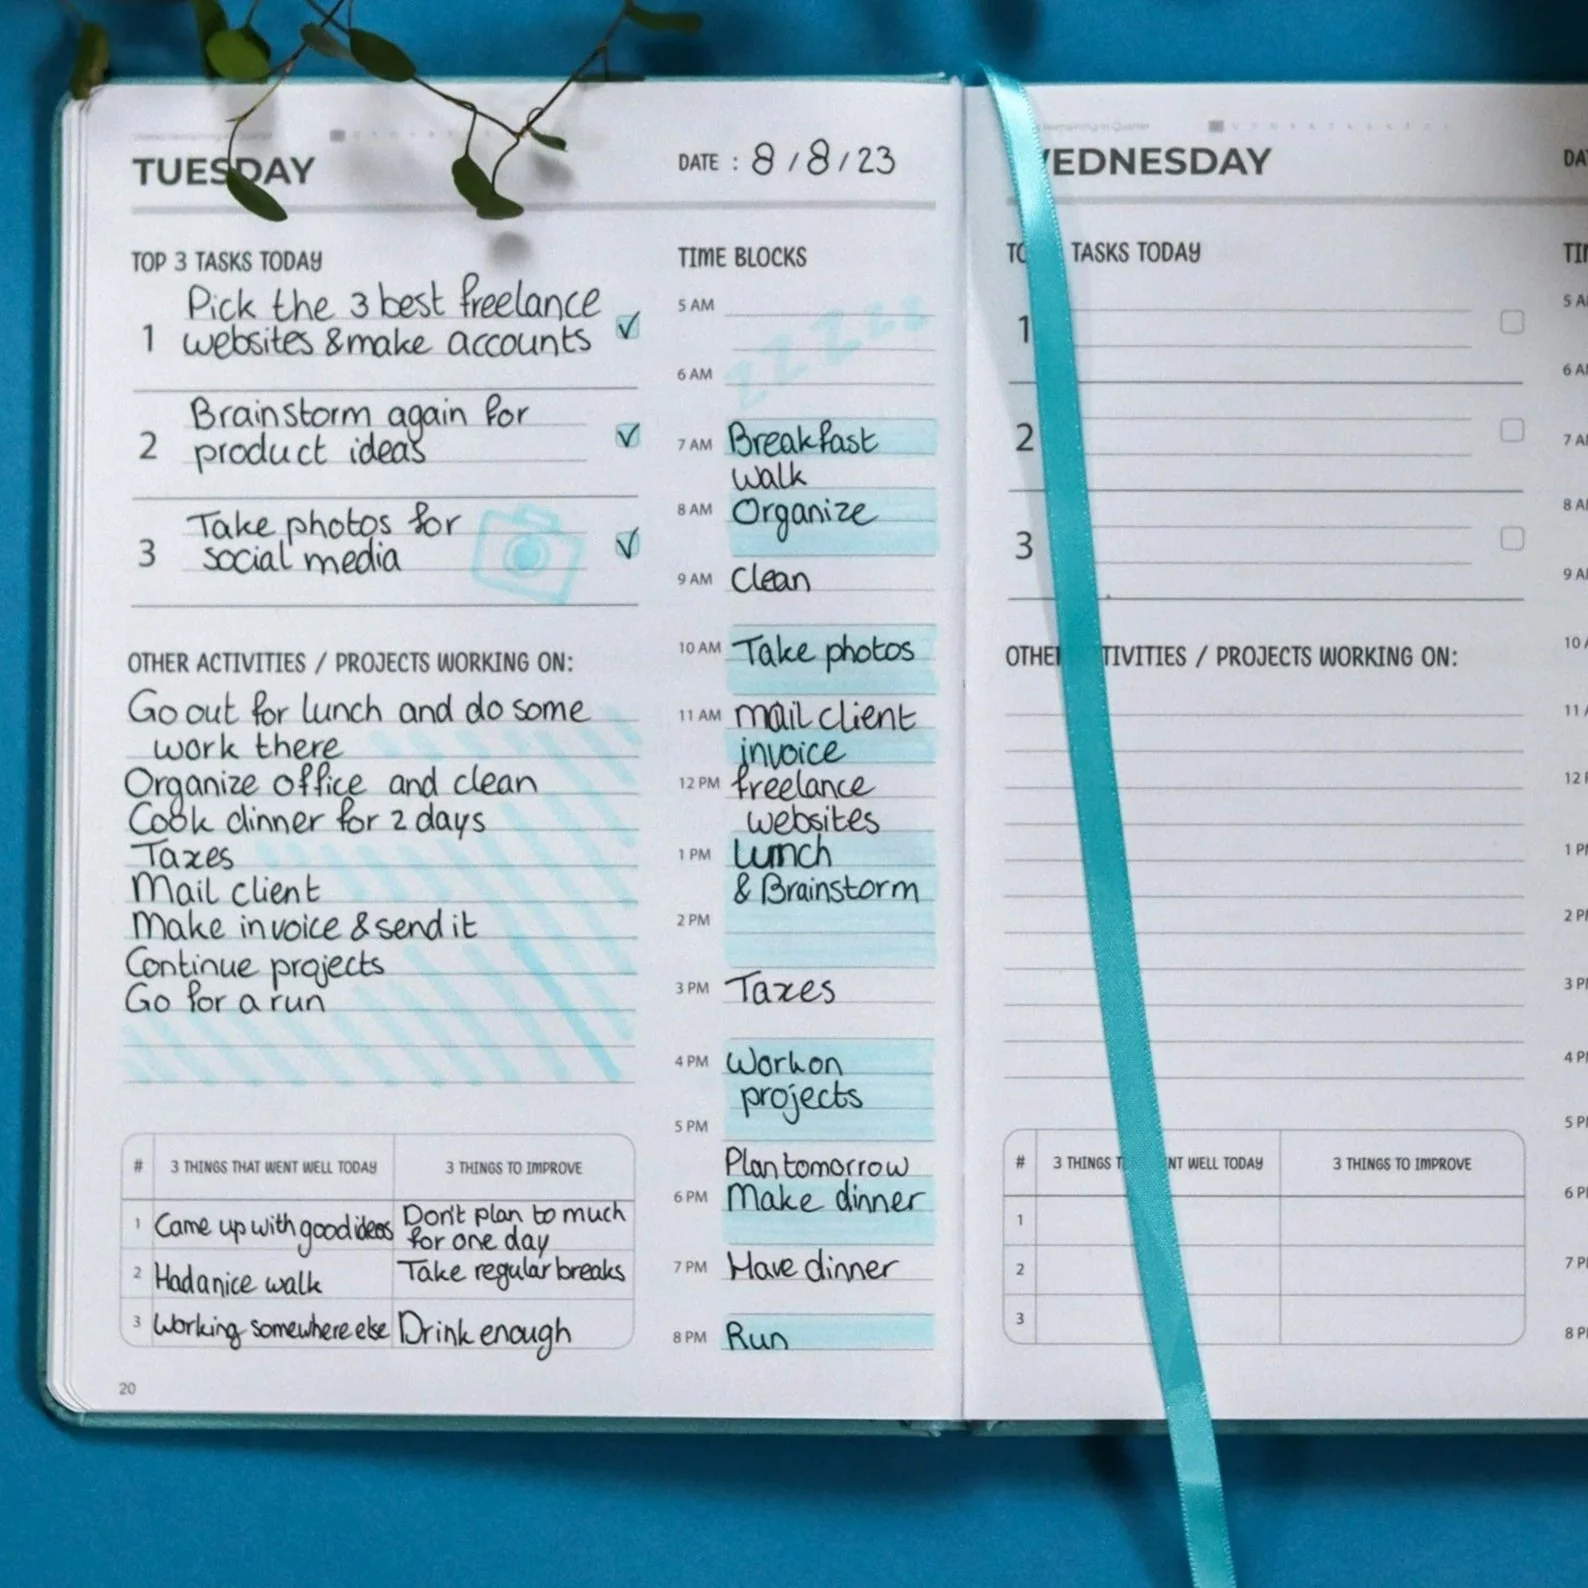 Weeks Remaining in Quarter
TUESDAY
DATE : 8/8/23
TOP 3 TASKS TODAY
1 Pick the 3 best freelance
websites & make accounts
2 Brainstorm again for
product ideas
3 Take photos for
social media
OTHER ACTIVITIES / PROJECTS WORKING ON:
Go out for lunch and do some
work there
Organize office and clean
Cook dinner for 2 days
Taxes
Mail client
Make invoice & send it
Continue projects
Go for a run
# 3 THINGS THAT WENT WELL TODAY 3 THINGS TO IMPROVE
1 Came up with good ideas Don't plan to much
for one day
2 Had a nice walk Take regular breaks
3 Working somewhere else Drink enough
20
TIME BLOCKS
5 AM
zzzzz
6 AM
7 AM Breakfast
walk
8 AM Organize
9 AM Clean
10 AM Take photos
11 AM mail client
invoice
12 PM freelance
websites
1 PM Lunch
& Brainstorm
2 PM
3 PM Taxes
4 PM Work on
projects
5 PM
Plan tomorrow
6 PM Make dinner
7 PM Have dinner
8 PM Run
Remaining in Quarter
WEDNESDAY
DA
TO TASKS TODAY
1
2
3
OTHE TIVITIES / PROJECTS WORKING ON:
# 3 THINGS T NT WELL TODAY 3 THINGS TO IMPROVE
1
2
3
TI
5 A
6 A
7 A
8 A
9 A
10
11
12 P
1 P
2 P
3 P
4 P
5 P
6 P
7 P
8 P